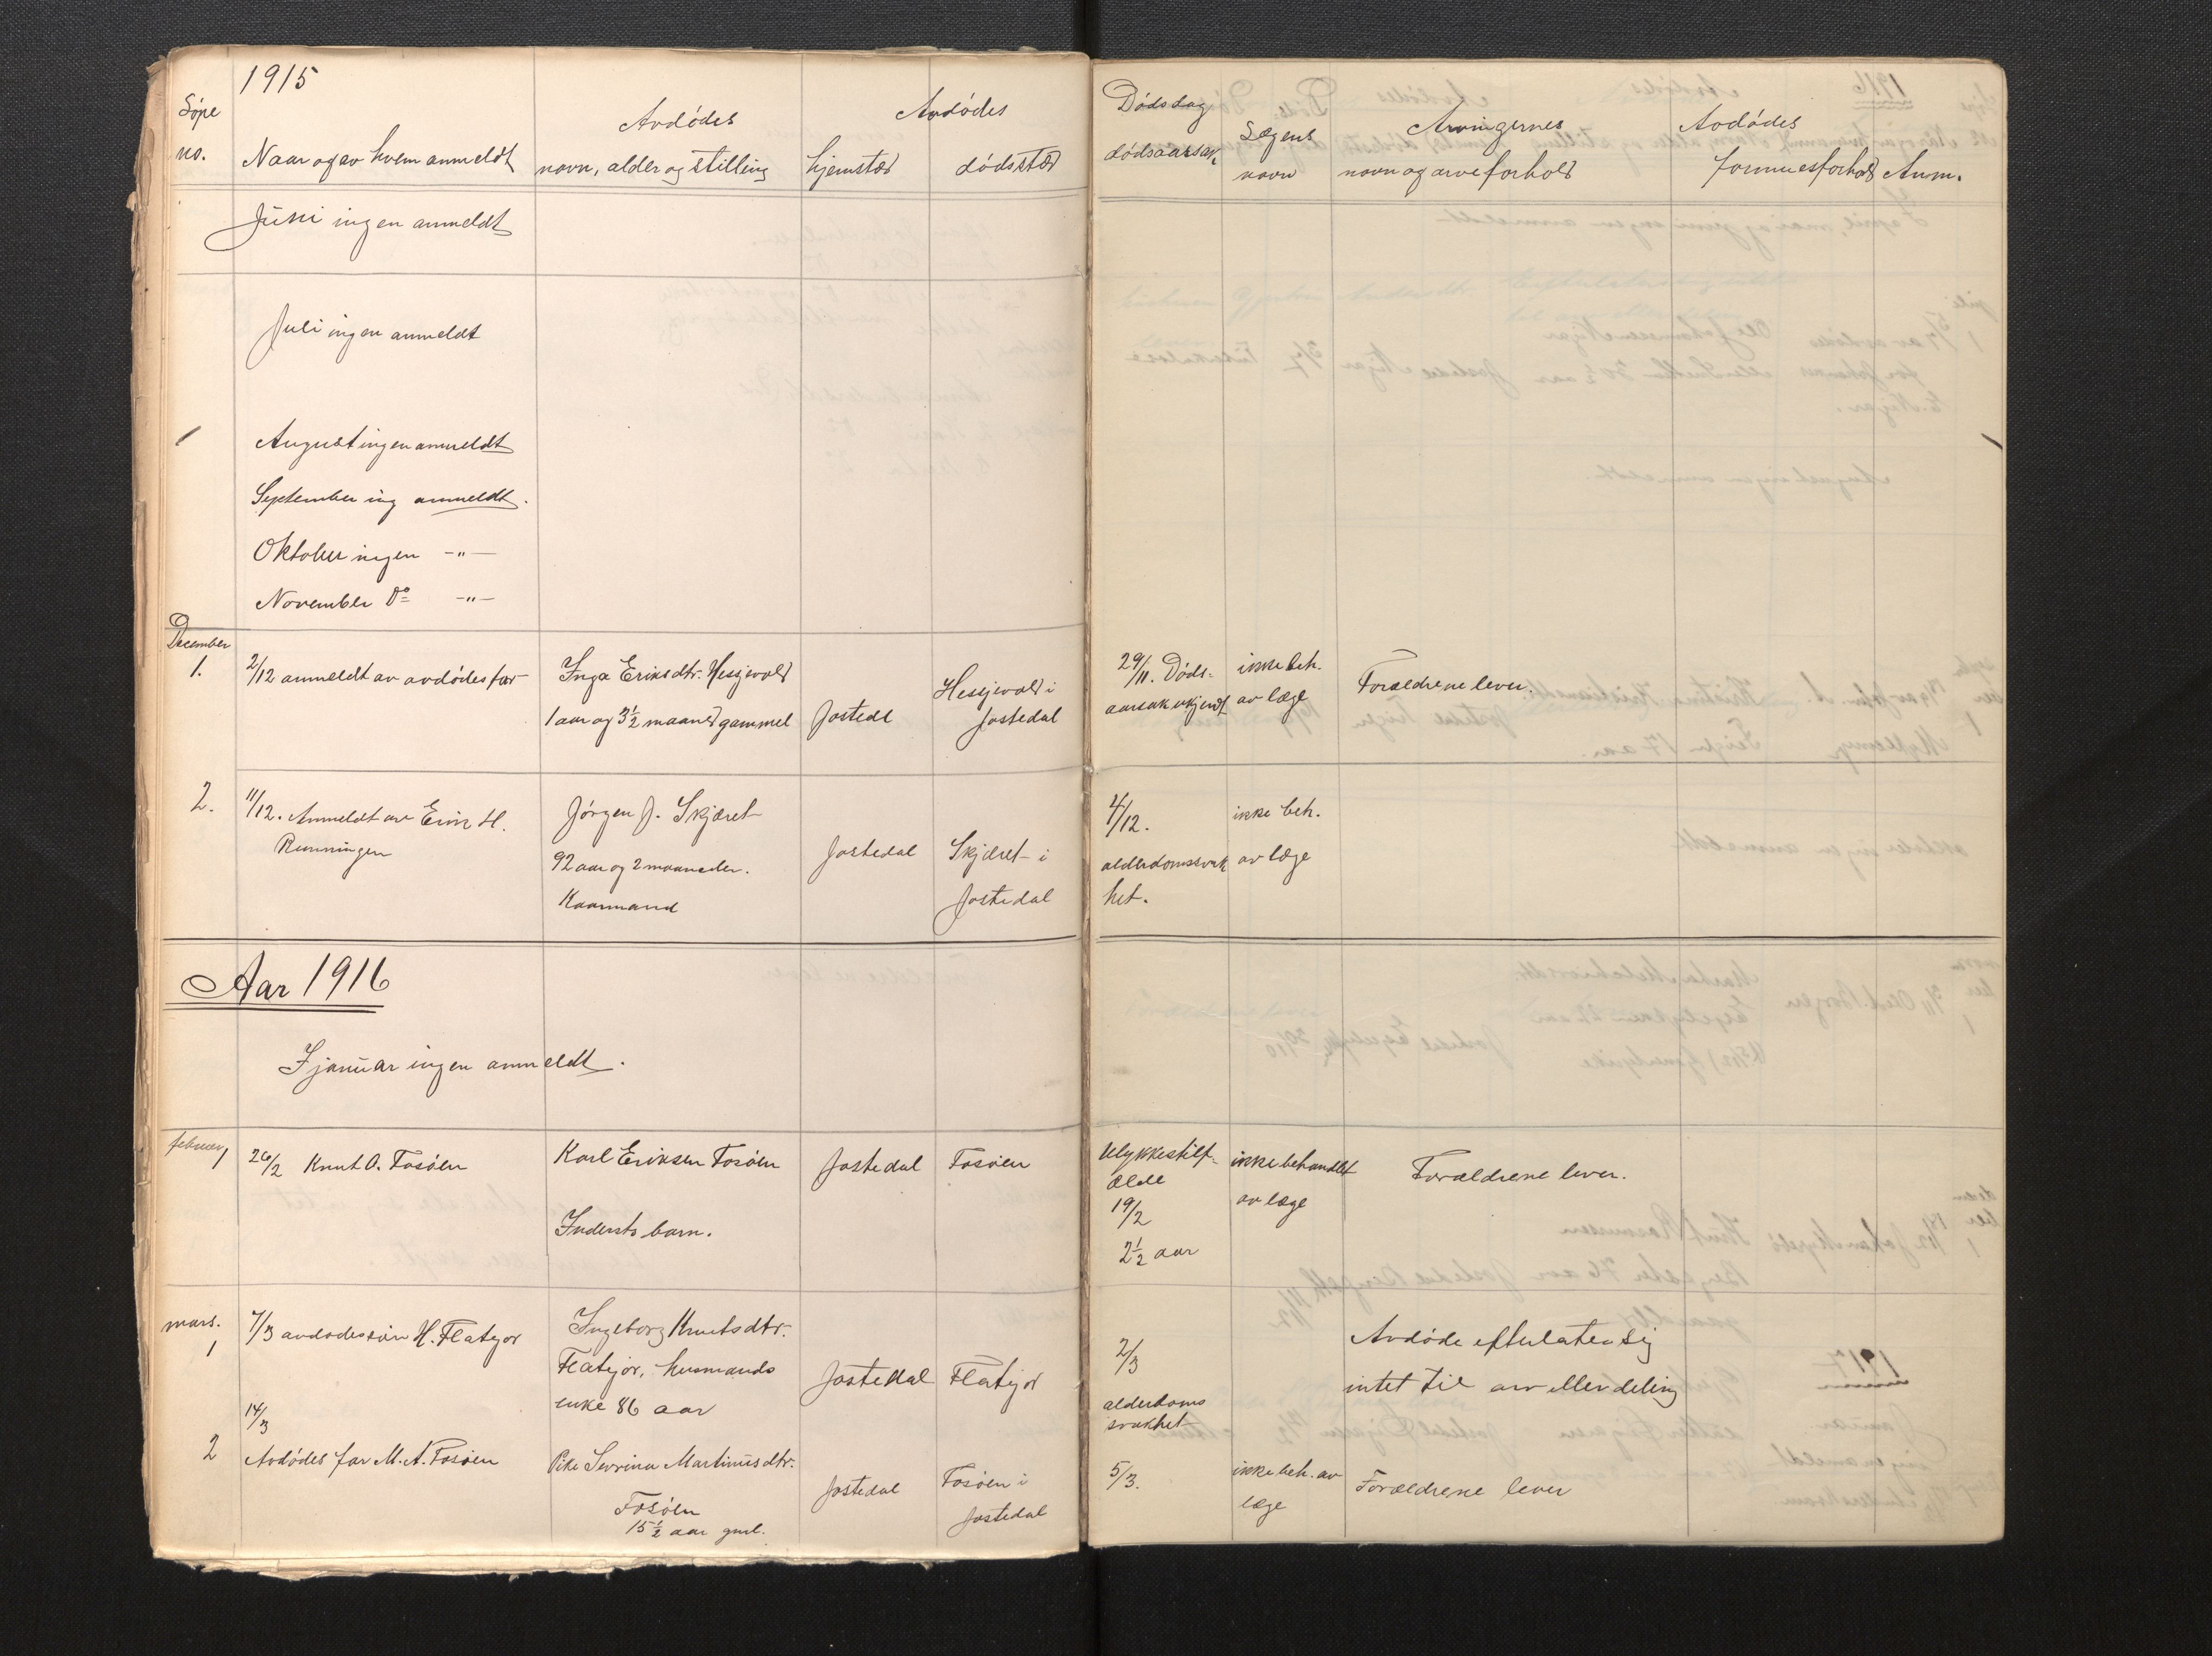 1915
Løpe
no.
Naar og av hvem anmeldt
Avdødes
navn, alder og stilling
Avdødes
hjemsted
dødssted
Dødsdag
dødsaarsak
Lægens
navn
Arvingernes
navn og arveforhold
Avdødes
formuesforhold
Anm.
Juni ingen anmeldt
Juli ingen anmeldt
August ingen anmeldt
September ing anmeldt.
Oktober ingen -"-
November do -"-
December
1.
2/12 anmeldt av avdødes far
Inga Eriksdtr. Hesjevold
1 aar og 3 1/2 maaned gammel
Jostedl
Hesjevold i
Jostedal
29/11. Døds-
aarsak ukjendt
ikke beh.
av læge
Forældrene lever.
2.
11/12. Anmeldt av Erik H.
Rumningen
Jørgen J. Skjæret
92 aar og 2 maaneder.
Kaarmand
Jostedal
Skjæret i
Jostedal
4/12.
alderdomssvak
het.
ikke beh.
av læge
Aar 1916
I januar ingen anmeldt.
februar
1
26/2 Knut O. Fosøen
Karl Eriksen Fosøen
Indersts barn.
Jostedal
Fosøen
Ulykkestilf-
ælde
19/2
2 1/2 aar
ikke behandlet
av læge
Forældrene lever.
mars.
1
7/3 avdødes søn H. Flatejor
Ingeborg Knutsdtr.
Flatejor, husmands
enke 86 aar
Jostedal
Flatejor
2/3
alderdoms
svakhet
Avdøde efterlater sig
intet til arv eller deling
2
14/3
Avdødes far M. A. Fosøen
Pike Severina Martinusdtr.
Fosøen
15 1/2 aar gml.
Jostedal
Fosøen i
Jostedal
5/3.
ikke beh. av
læge
Forældrene lever